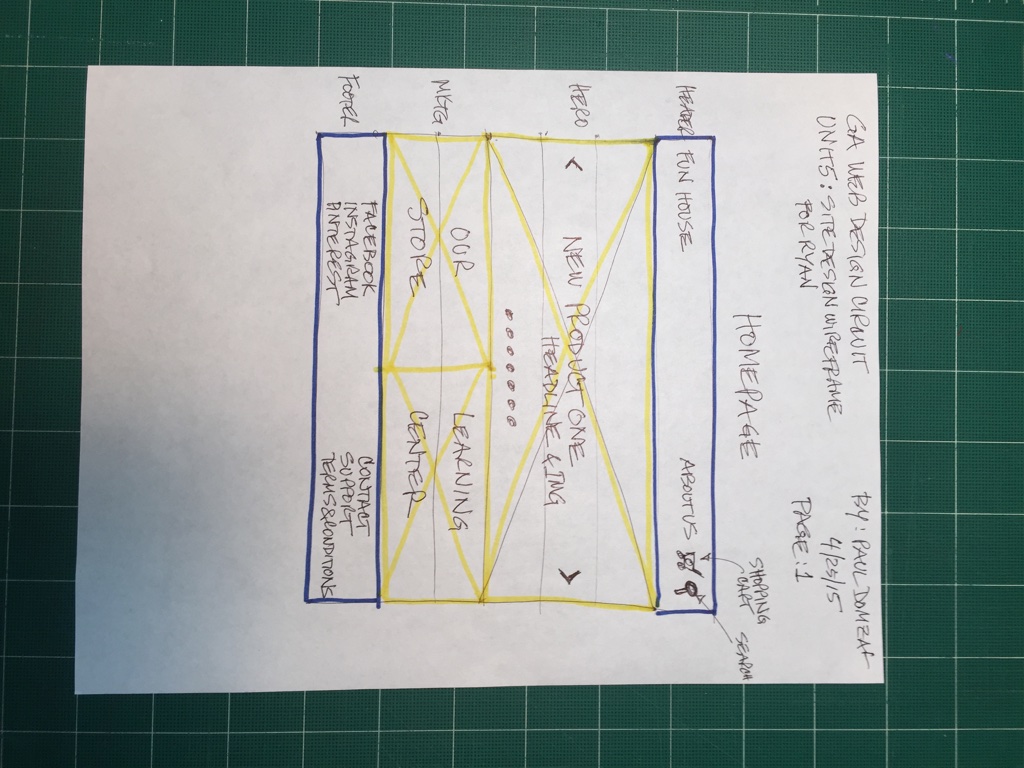 GA WEB DESIGN CIRCUIT
UNIT 5: SITE DESIGN WIREFRAME
FOR RYAN
BY: PAUL
4/25/15
PAGE: 1
HOMEPAGE
SHOPPING
CART
SEARCH
HEADER
FUN HOUSE
ABOUT US
HERO
<
NEW PRODUCT ONE
HEADLINE & IMG
>
MKTG
OUR
STORE
LEARNING
CENTER
FOOTER
FACEBOOK
INSTAGRAM
PINTEREST
CONTACT
SUPPORT
TERMS & CONDITIONS